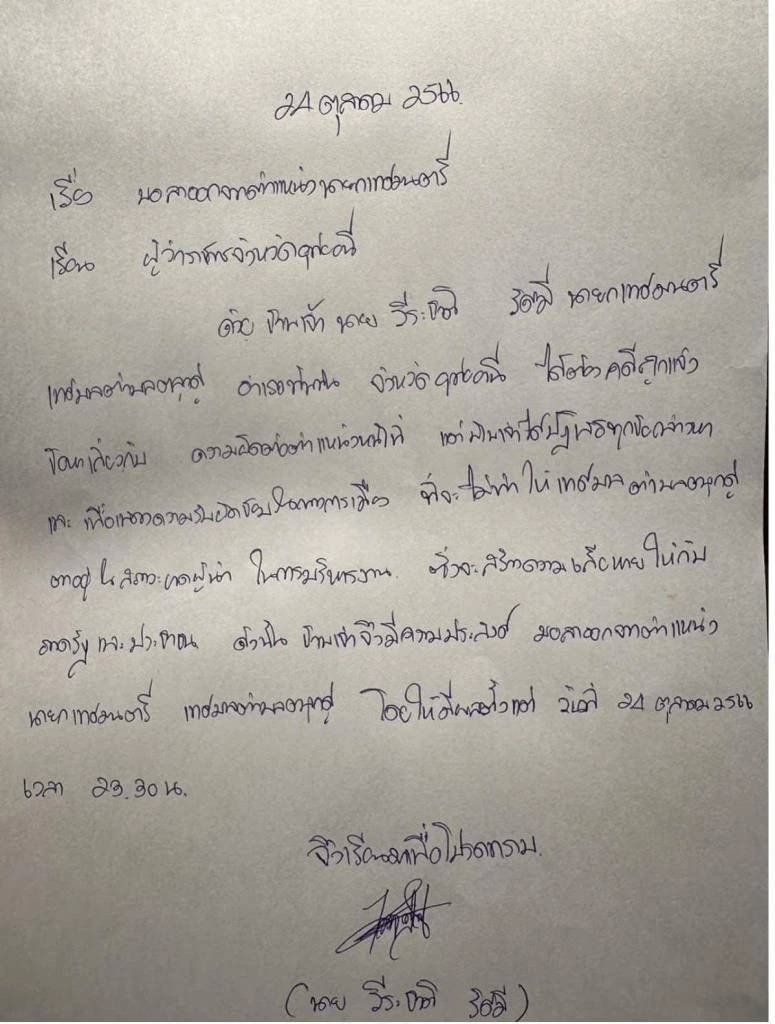 24 ตุลาคม 2566.
เรื่อง ขอลาออกจากตำแหน่งนายกเทศมนตรี
เรียน ผู้ว่าราชการจังหวัดอุทัยธานี
ด้วย ข้าพเจ้า นาย วีระชาติ รัศมี นายกเทศมนตรี
เทศบาลตำบลตลุกดู่ อำเภอทัพทัน จังหวัดอุทัยธานี ได้ต้องคดีถูกแจ้ง
ข้อหาเกี่ยวกับ ความผิดต่อตำแหน่งหน้าที่ แต่ข้าพเจ้าได้ปฏิเสธทุกข้อกล่าวหา
และ เพื่อแสดงความรับผิดชอบในทางการเมือง ที่จะไม่ทำให้ เทศบาลตำบลตลุกดู่
ตกอยู่ในสภาวะขาดผู้นำ ในการบริหารงาน. ซึ่งจะสร้างความเสียหายให้กับ
ภาครัฐและประชาชน ดังนั้น ข้าพเจ้าจึงมีความประสงค์ ขอลาออกจากตำแหน่ง
นายกเทศมนตรี เทศบาลตำบลตลุกดู่ โดยให้มีผลตั้งแต่ วันที่ 24 ตุลาคม 2566
เวลา 23.30 น.
จึงเรียนมาเพื่อโปรดทราบ.
(นาย วีระชาติ รัศมี)